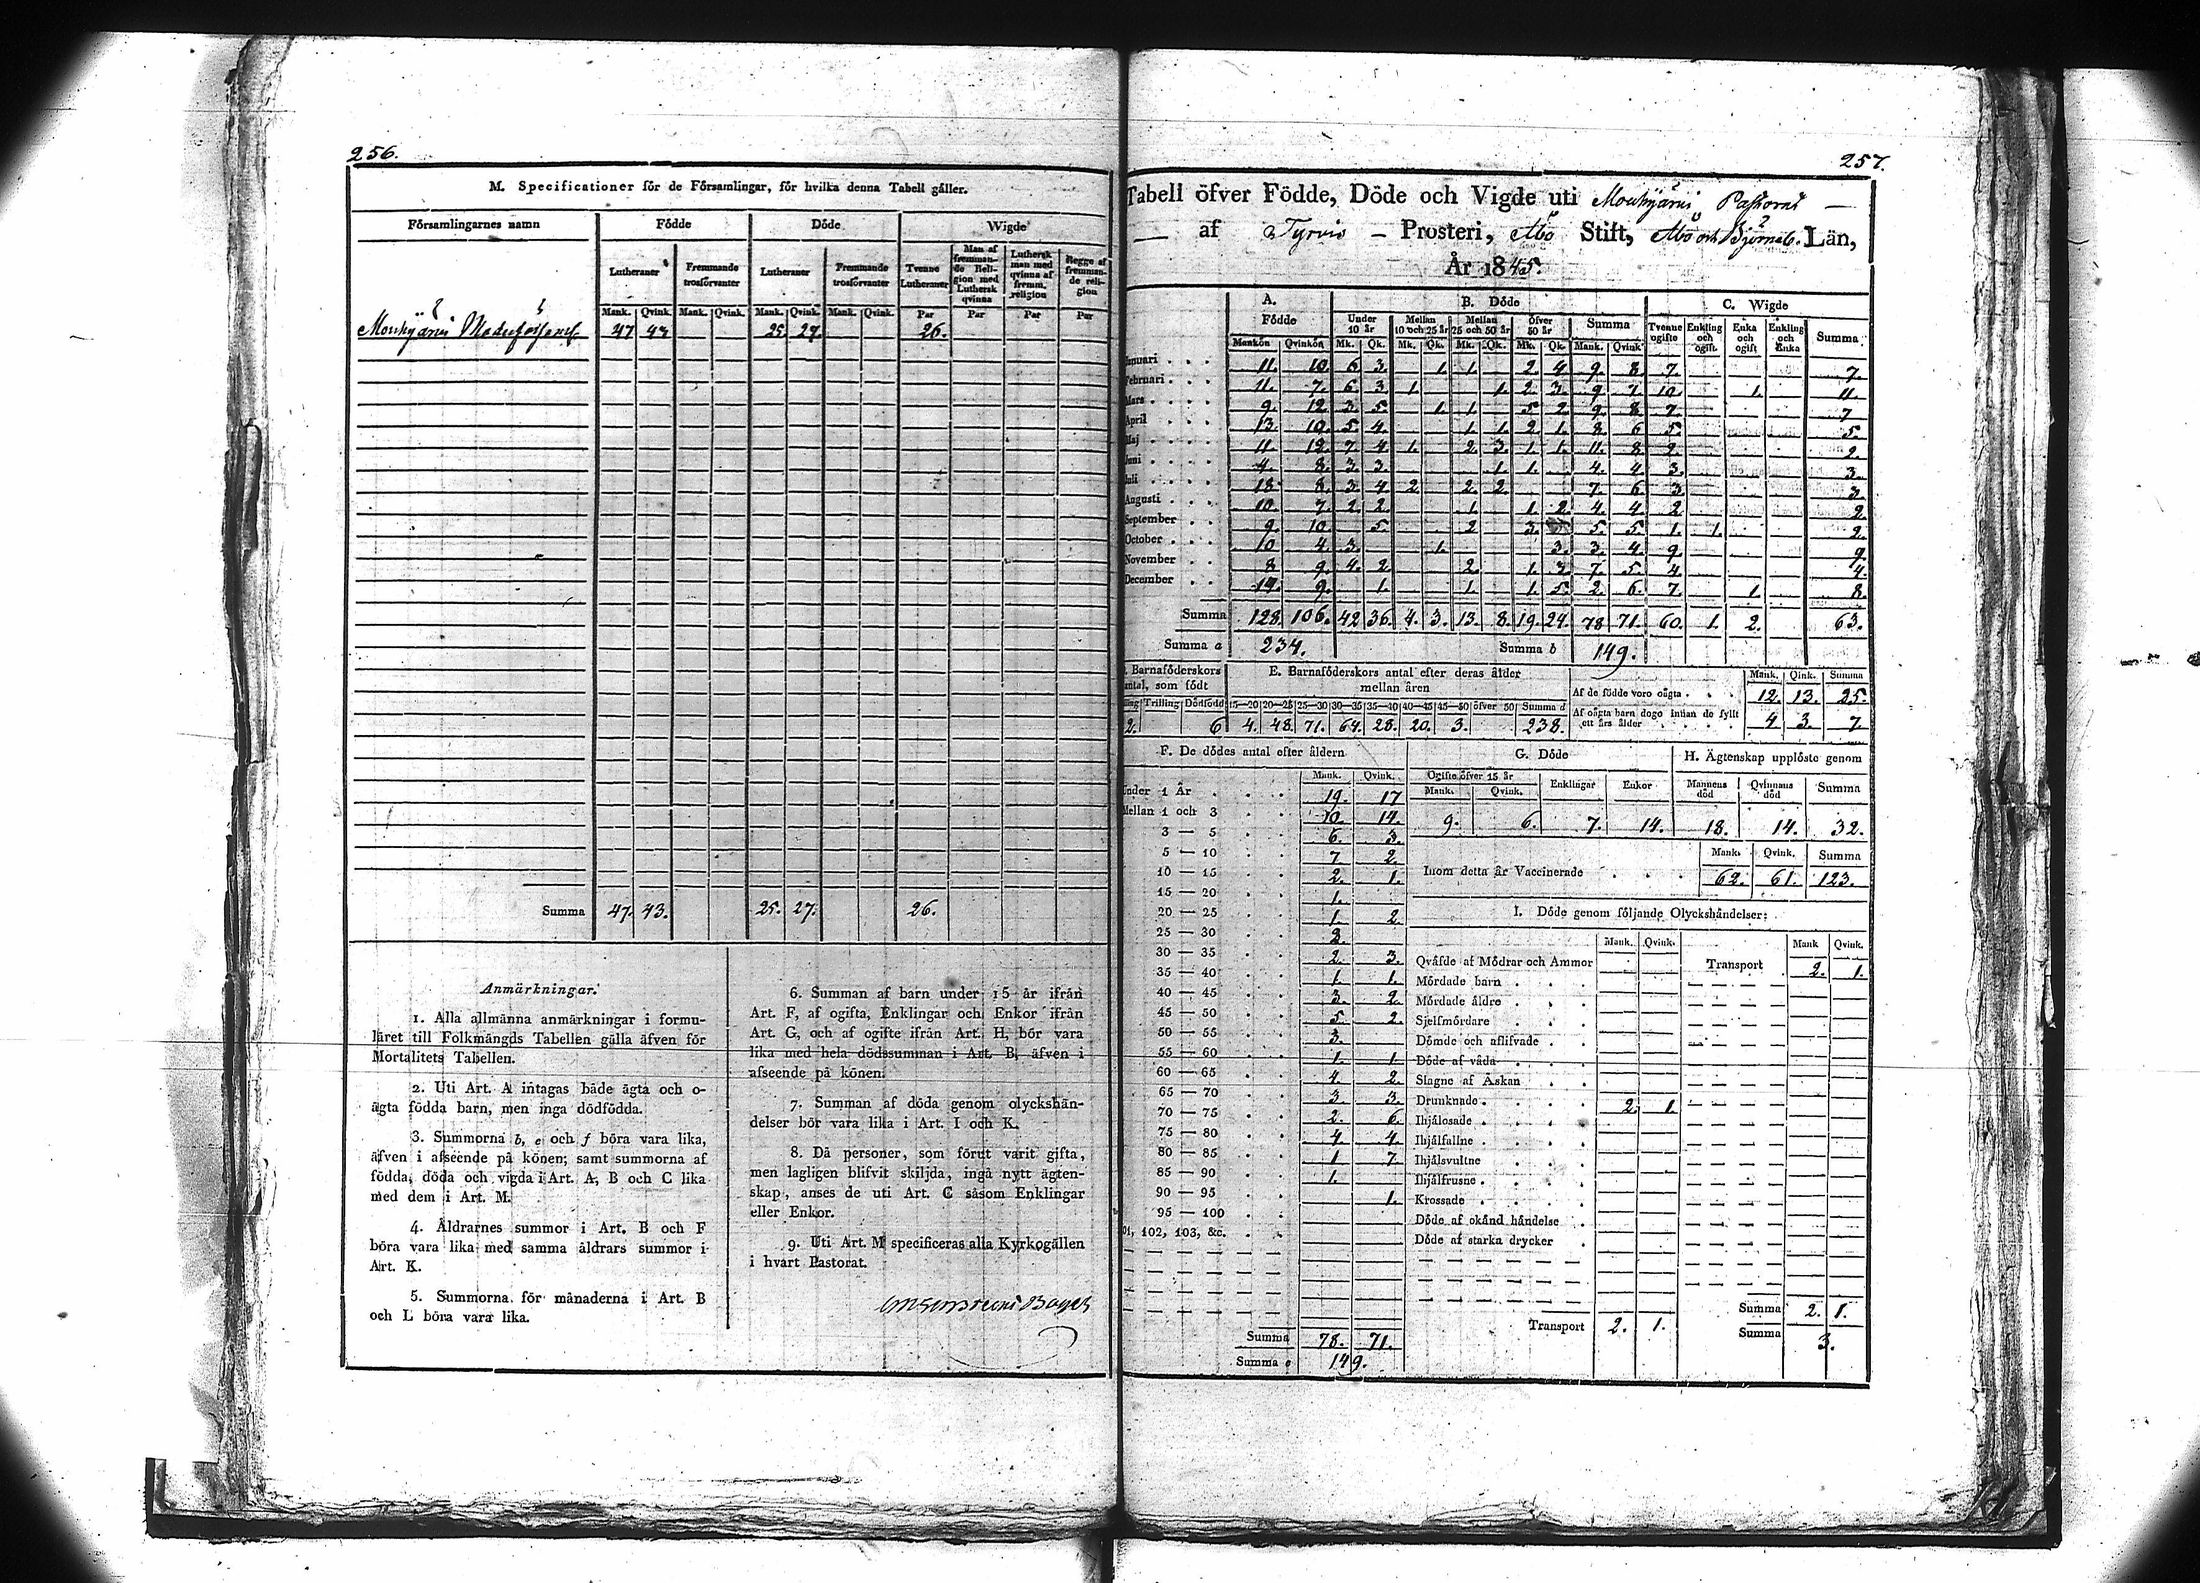 256.
M. Specificationer för de Församlingar, för hvilka denna Tabell gäller.
Församlingarnes namn Födde Döde Wigde
Lutheraner Fremmande trosförvanter Lutheraner Fremmande trosförvanter Tvenne Lutheraner Man af fremmande Religion med Luthersk qvinna Luthersk man med qvinna af fremm. religion Begge af fremmande religion
Mank. Qvink. Mank. Qvink. Mank. Qvink. Mank. Qvink. Par Par Par Par
Mouhijärvi 47 43 25. 27. 26.
Summa 47. 43. 25. 27. 26.
Anmärkningar.
1. Alla allmänna anmärkningar i formu-
läret till Folkmängds Tabellen gälla äfven för
Mortalitets Tabellen.
2. Uti Art. A intagas både ägta och o-
ägta födda barn, men inga dödfödda.
3. Summorna b, e och f böra vara lika,
äfven i afseende på könen; samt summorna af
födda, döda och vigda i Art. A, B och C lika
med dem i Art. M.
4. Åldrarnes summor i Art. B och F
böra vara lika med samma åldrars summor i
Art. K.
5. Summorna för månaderna i Art. B
och L böra vara lika.
6. Summan af barn under 15 år ifrån
Art. F, af ogifta, Enklingar och Enkor ifrån
Art. G, och af ogifte ifrån Art. H, bör vara
lika med hela dödssumman i Art. B, äfven i
afseende på könen.
7. Summan af döda genom olyckshän-
delser bör vara lika i Art. I och K.
8. Då personer, som förut varit gifta,
men lagligen blifvit skiljda, ingå nytt ägten-
skap, anses de uti Art. C såsom Enklingar
eller Enkor.
9. Uti Art. M specificeras alla Kyrkogällen
i hvart Pastorat.
257.
Tabell öfver Födde, Döde och Vigde uti Mouhijärvi Pastorat
af Tyrvis Prosteri, Åbo Stift, Åbo och Björneb. Län,
År 1845.
A. Födde B. Döde C. Wigde
Under 10 år Mellan 10 och 25 år Mellan 25 och 50 år Öfver 50 år Summa Tvenne ogifte Enkling och ogift Enka och ogift Enkling och Enka Summa
Mankön Qvinkön Mk. Qk. Mk. Qk. Mk. Qk. Mk. Qk. Mank. Qvink.
Januari 11. 10. 6 3. 1. 1. 2 4. 9. 8. 7. 7.
Februari 11. 7. 6 3. 1. 1. 2 3. 9. 7. 10. 1. 11.
Mars 9. 12. 3. 5. 1. 1. 5 2. 9. 8. 7. 7
April 13. 10. 5 4. 1. 1. 2 1. 8. 6. 5. 5.
Maj 11. 12. 7 4 1. 2. 3. 1. 1. 11. 8 2. 2.
Juni 8. 3. 3. 1. 1. 4. 4 3. 3.
Juli 18 8. 3 4 2 2. 2. 7. 6. 3. 3.
Augusti 10. 7. 2 2. 1. 1. 2. 4. 4 2 2.
September 9. 10. 5. 2 3. 5. 5. 1. 1. 2.
October 10 4. 3. 1. 3. 3. 4. 9. 9.
November 8 9. 4. 2 2. 1. 3. 7. 5. 4. 4.
December 9. 1. 1. 1. 5. 2. 6. 7. 1. 8.
Summa 128. 106. 42 36. 4. 3. 13. 8. 19. 24. 78 71. 60. 1. 2. 63.
Summa a 234. Summa b 149.
Barnaföderskors antal, som födt
Trilling Dödfödd
2. 6
E. Barnaföderskors antal efter deras ålder mellan åren
15—20 20—25 25—30 30—35 35—40 40—45 45—50 öfver 50 Summa d
4. 48. 71. 64. 28. 20. 3. 238.
Mank. Qink. Summa
Af de födde voro oägta 12. 13. 25.
Af oägta barn dogo innan de fyllt ett års ålder 4 3. 7.
F. De dödes antal efter åldern
Mank. Qvink.
Under 1 År 19. 17
Mellan 1 och 3 10. 14.
3 — 5 6. 3.
5 — 10 7 2.
10 — 15 2. 1.
15 — 20 1.
20 — 25 1. 2.
25 — 30
30 — 35 2. 3.
35 — 40 1. 1.
40 — 45 3. 2.
45 — 50 5. 2.
50 — 55 3.
55 — 60 1. 1.
60 — 65 4. 2.
65 — 70 3. 3.
70 — 75 2. 6.
75 — 80 4. 4.
80 — 85 1 7.
85 — 90 1.
90 — 95 1.
95 — 100
101, 102, 103, &c.
Summa 78. 71.
Summa e 149.
G. Döde
Ogifte öfver 15 år Enklingar Enkor
Mank. Qvink.
9. 6. 7. 14.
H. Ägtenskap upplöste genom
Mannens död Qvinnans död Summa
18. 14. 32.
Mank. Qvink. Summa
Inom detta år Vaccinerade 62. 61. 123.
I. Döde genom följande Olyckshändelser:
Mank. Qvink. Mank Qvink.
Qväfde af Mödrar och Ammor Transport 2. 1.
Mördade barn
Mördade äldre
Sjelfmördare
Dömde och aflifvade
Döde af våda
Slagne af Åskan
Drunknade 2. 1.
Ihjälosade
Ihjälfallne
Ihjälsvultne
Ihjälfrusne
Krossade
Döde af okänd händelse
Döde af starka drycker
Summa 2. 1.
Transport 2. 1.
Summa 3.